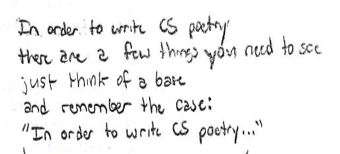 In order to write CS poetry
there are a few things you need to see
just think of a base
and remember the case:
"In order to write CS poetry..."